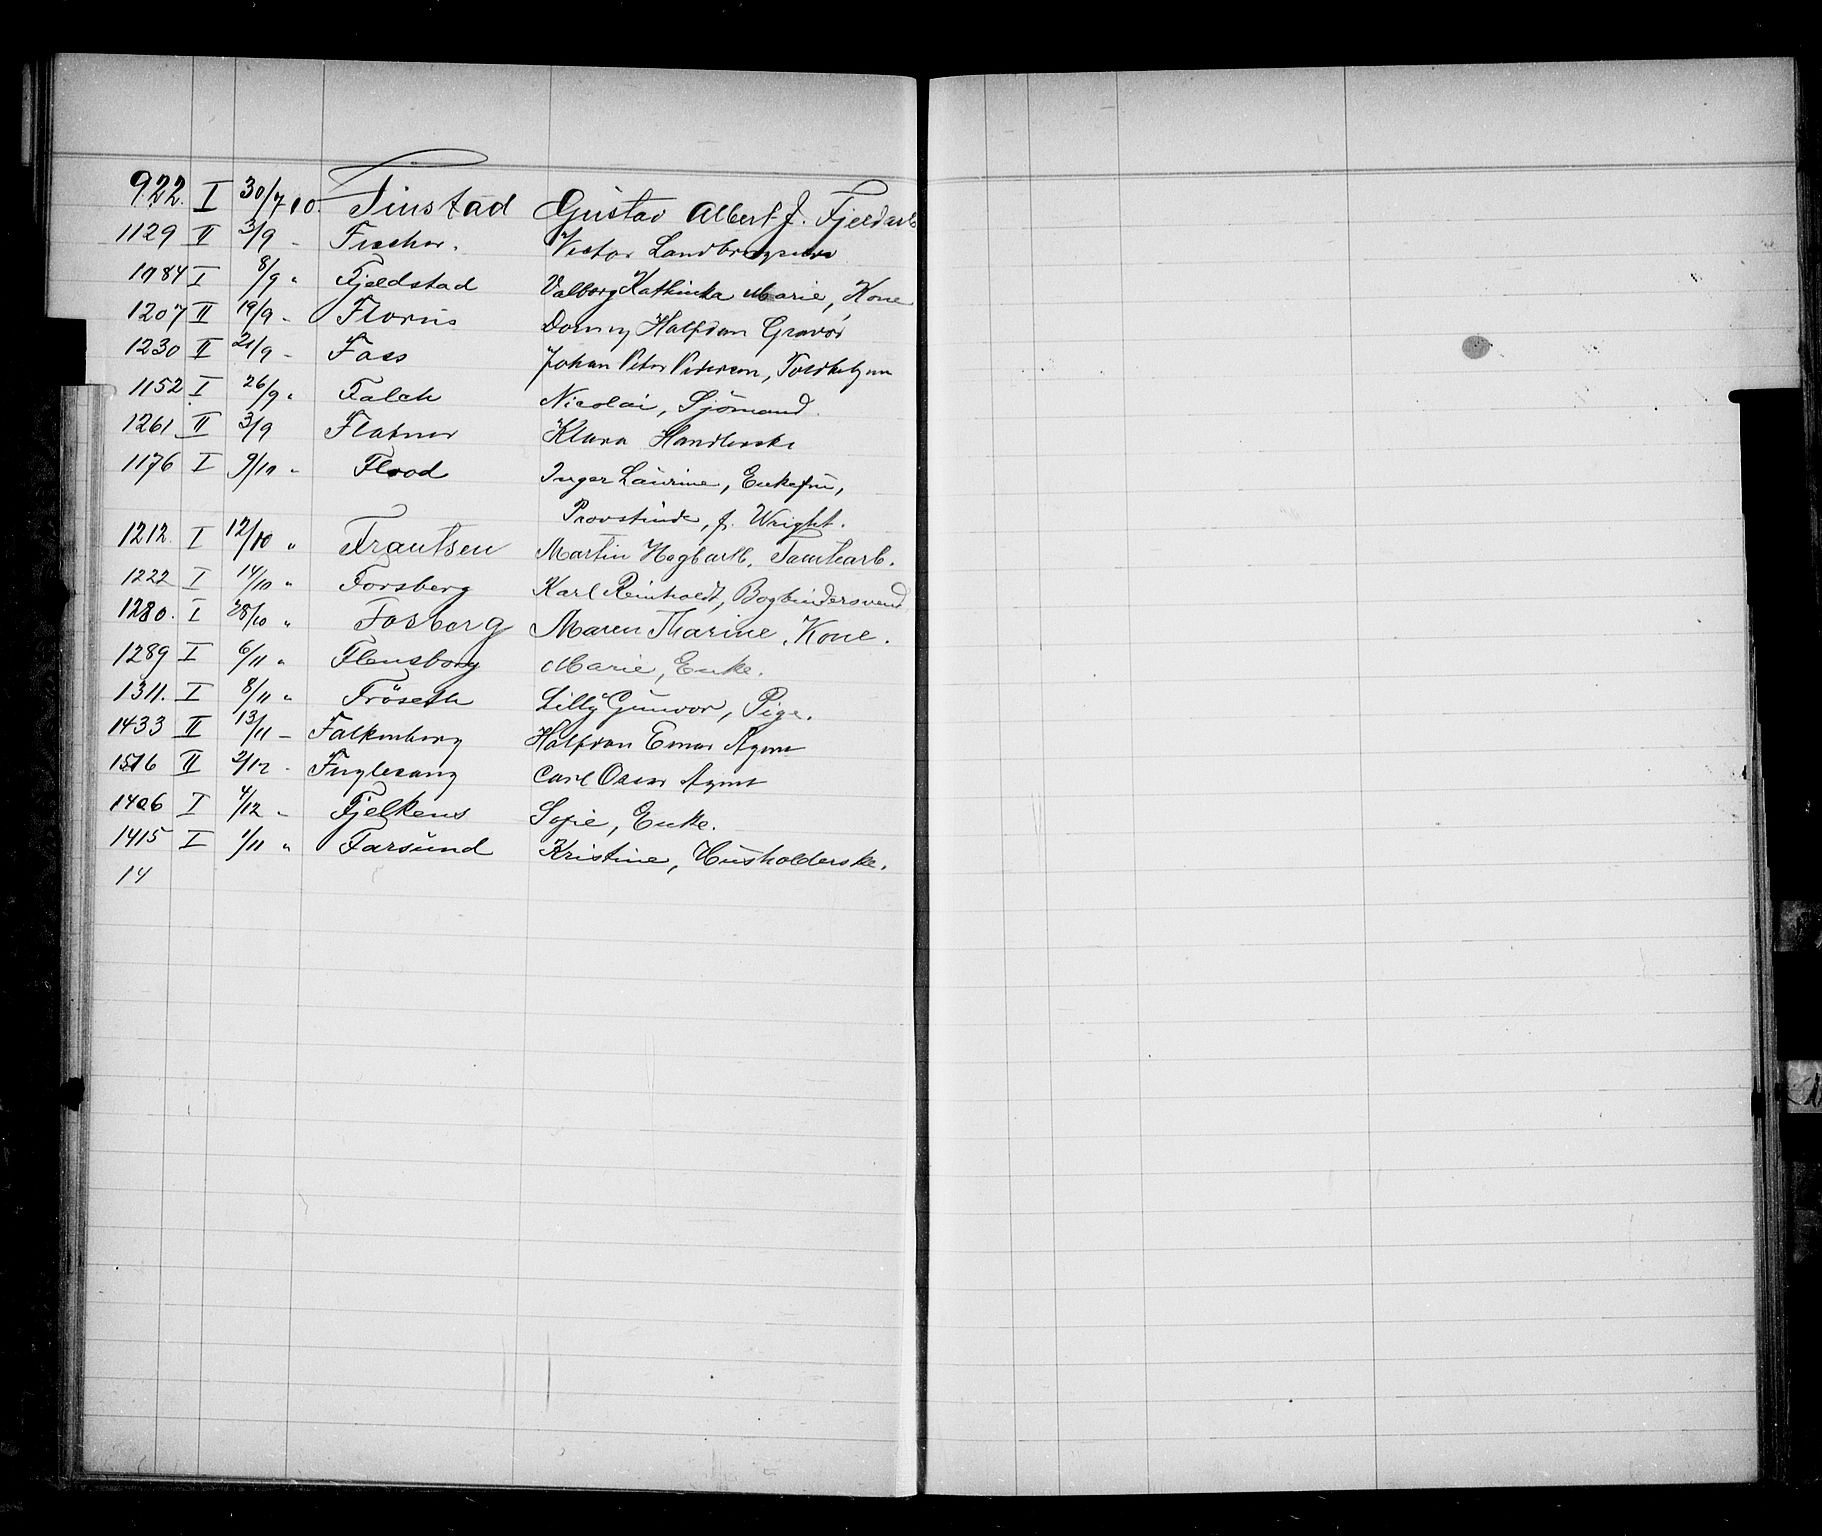 922. I 30/7 10. Finstad Gustav Albert J. Fjeldarb
1129 II 3/9 - Fischer. Victor
1084 I 8/9 " Fjeldstad Valborg Kathinka Marie, Kone
1207 II 19/9 - Florus Halfdan Gravør
1230 II 21/9 - Foss Johan Peter Pedersen,
1152 I 26/9 " Falch Nicolai, Sjömand.
1261 II 3/9 Flatner Klara Handlerske
1176 I 9/10 " Flood Inger Laurine, Enkefru,
Provstinde, f. Wright.
1212. I 12/10 " Frantsen Martin Hagbarth,
1222 I 14/10 " Forsberg Karl Reinholdt, Bogbindersvend
1280. I 28/10 " Fosberg Maren Tharine, Kone.
1289 I 6/11 " Flensborg Marie, Enke.
1311. I 8/11 " Fröseth Lilly Gunvor, Pige.
1433 II 13/11 - Falkenberg Halfdan Einar Agent
1516 II 2/12 - Fuglesang Carl Oscar Agent
1406 I 4/12 " Fjelkens Sofie, Enke.
1415 I 1/11 " Farsund Kristine, Husholderske.
14